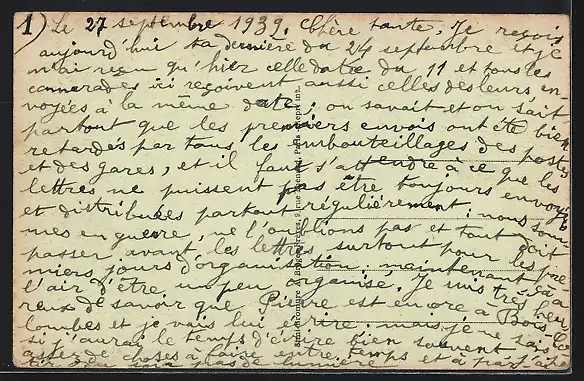 1) Le 27 septembre 1939. Chère tante, Je reçois
aujourd'hui ta dernière du 24 septembre et je
n'ai reçu qu'hier celle datée du 11 et tous les
camarades ici reçoivent aussi celles des leurs, en-
voyées à la même date; on savait et on sait
partout que les premiers envois ont été bien
retardés par tous les embouteillages des postes
et des gares, et il faut s'attendre à ce que les
lettres ne puissent pas être toujours envoyées
et distribuées partout régulièrement; nous som-
mes en guerre, ne l'oublions pas et tout doit
passer avant les lettres surtout pour les pre-
miers jours d'organisation, maintenant ça a
l'air d'être un peu organisé. Je suis très heu-
reux de savoir que Pierre est encore à Bois Co-
lombes et je vais lui écrire; mais je ne sais
si j'aurai le temps d'écrire bien souvent
assez de choses à faire entre temps et à
pas de lumière